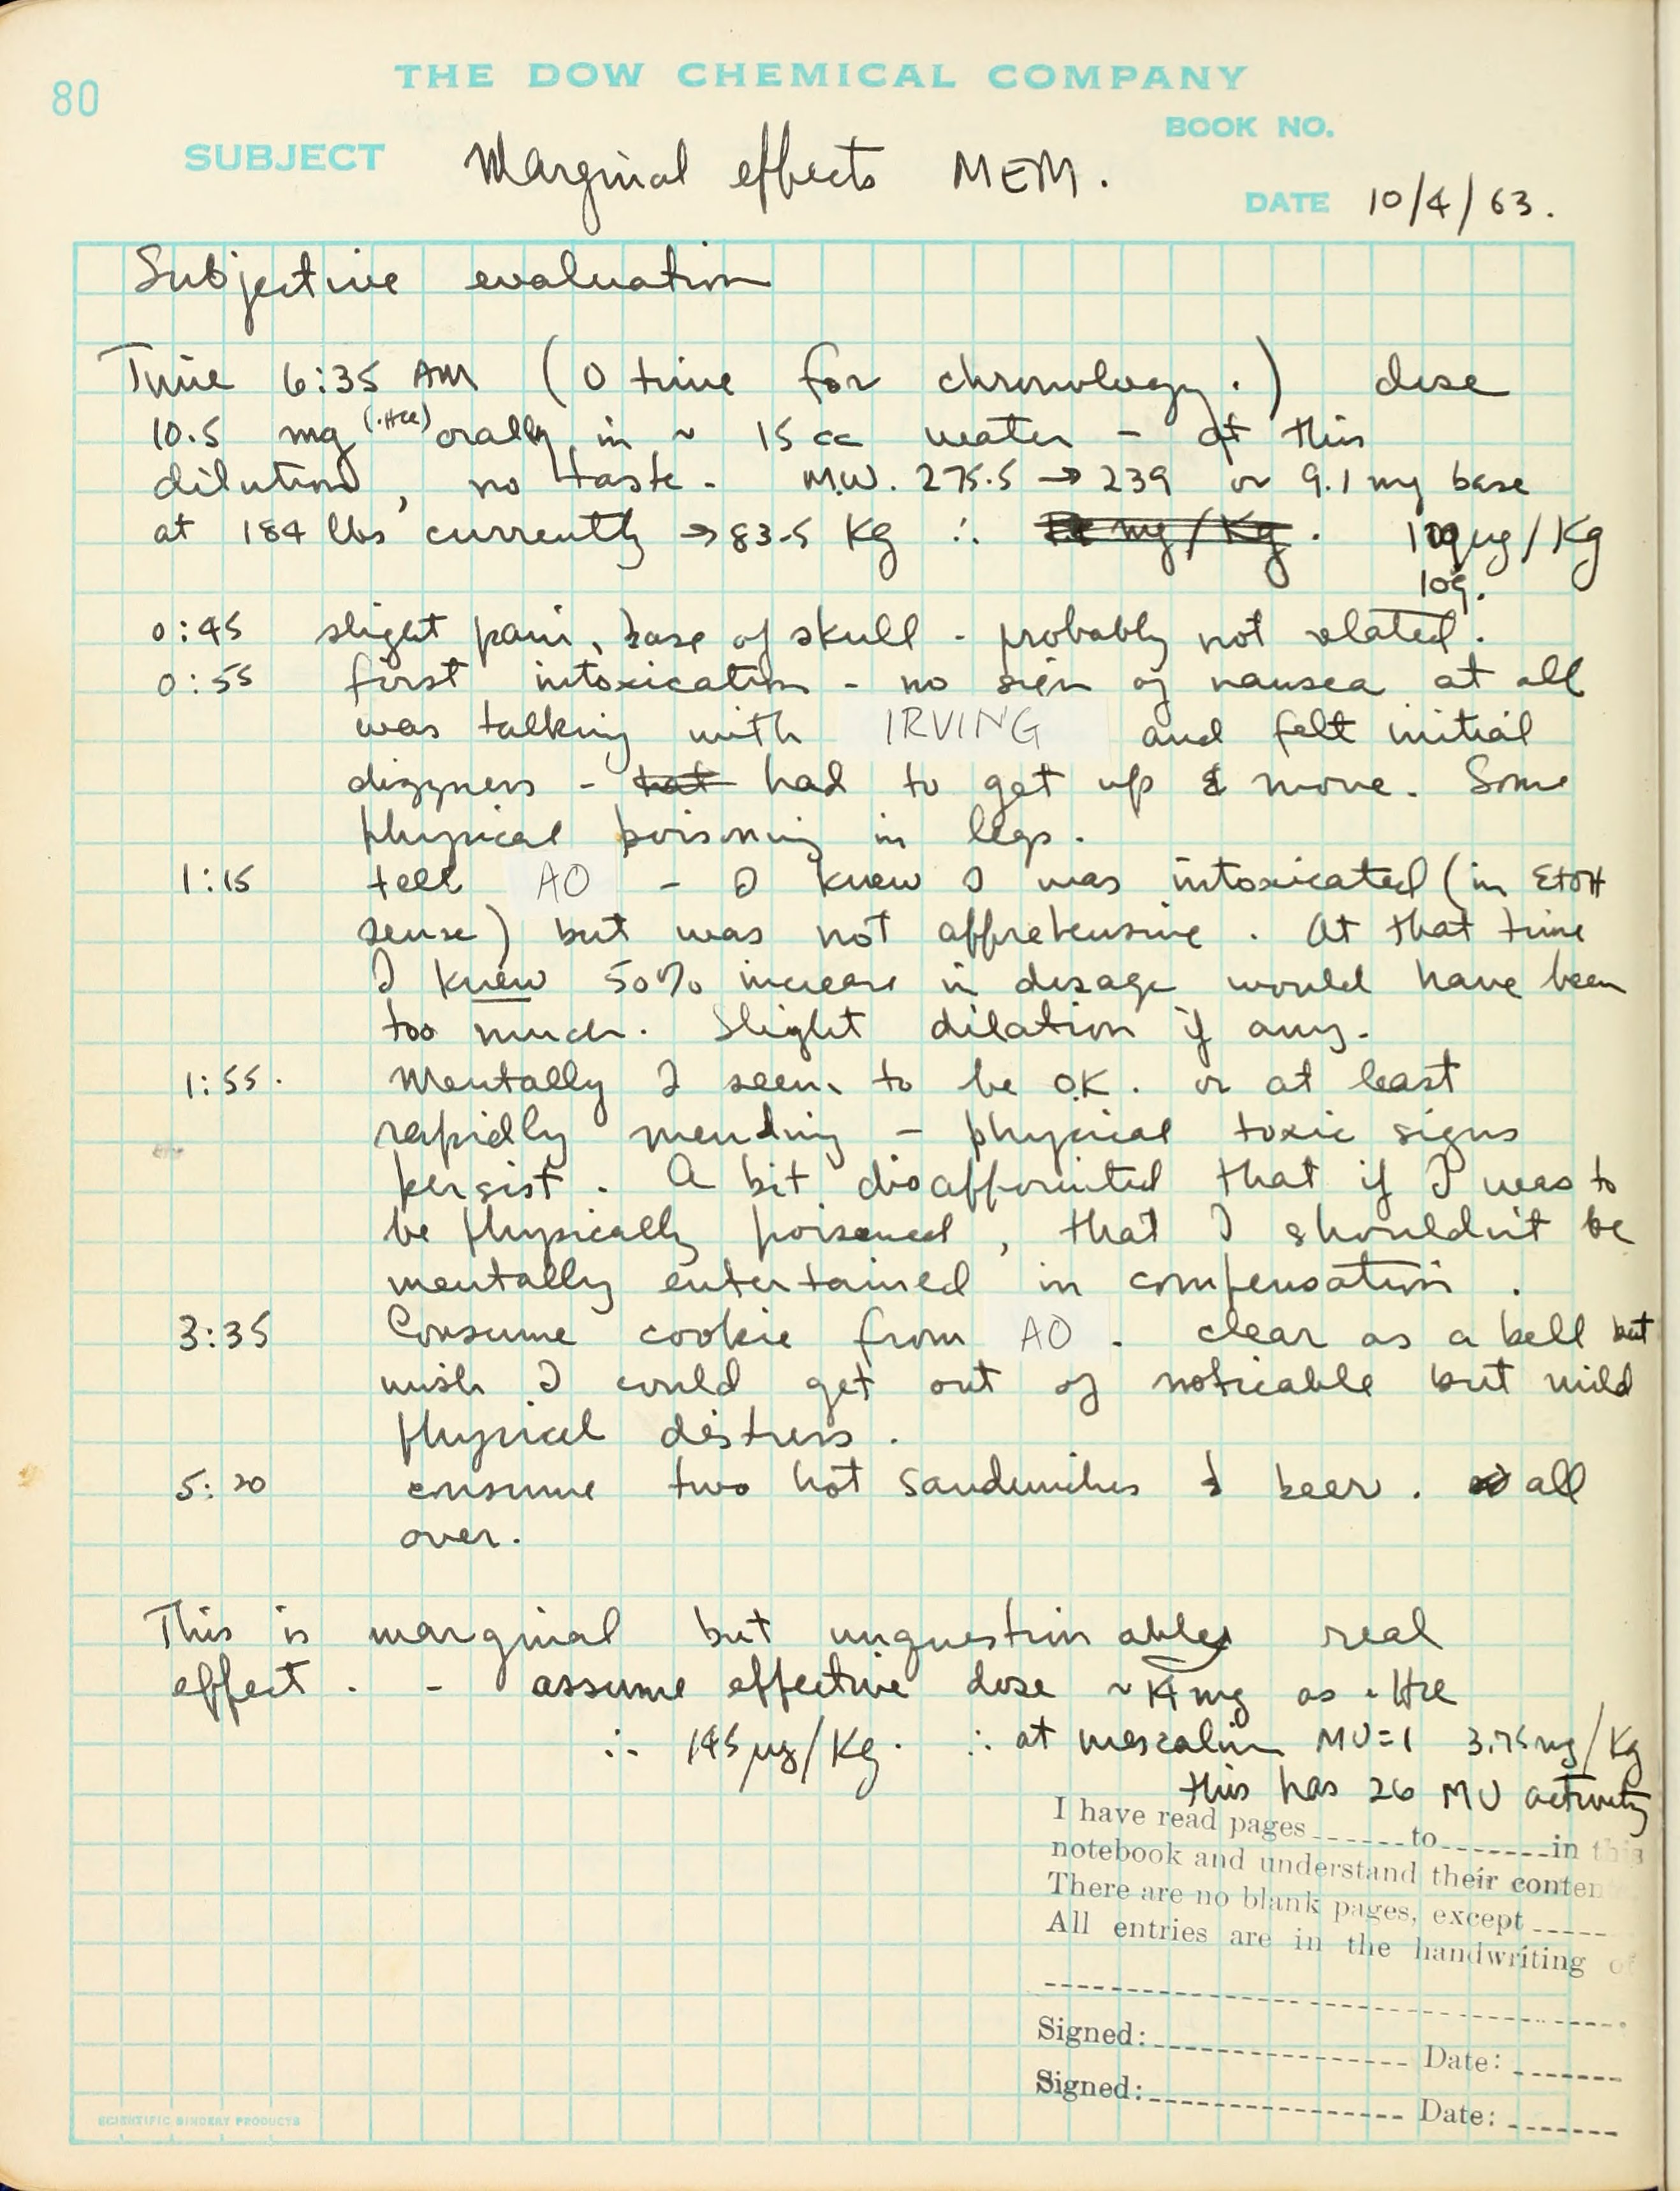 80
THE DOW CHEMICAL COMPANY
BOOK NO.
SUBJECT Marginal effects MEM.
DATE 10/4/63.
Subjective evaluation
Time 6:35 AM (0 time for chronology.) dose
10.5 mg (·HCl) orally in ~ 15 cc water - at this
dilution, no taste. M.W. 275.5 → 239 or 9.1 mg base
at 184 lbs currently → 83.5 Kg ∴ mg/Kg. 109 µg/Kg
109.
0:45 slight pain, base of skull - probably not related.
0:55 first intoxication - no sign of nausea at all
was talking with IRVING and felt initial
dizzyness - hat had to get up & move. Some
physical poisoning in legs.
1:15 tell AO - I knew I was intoxicated (in EtOH
sense) but was not apprehensive. At that time
I knew 50% increase in dosage would have been
too much. Slight dilation if any.
1:55. Mentally I seem to be O.K. or at least
rapidly mending - physical toxic signs
persist. A bit disappointed that if I was to
be physically poisoned, that I shouldn't be
mentally entertained in compensation.
3:35 Consume cookie from AO. clear as a bell but
wish I could get out of noticable but mild
physical distress.
5:20 consume two hot sandwiches & beer. all
over.
This is marginal but unquestionably real
effect. - assume effective dose ~ 14 mg as ·HCl
∴ 145 µg/Kg. ∴ at mescaline MU=1 3.75 mg/Kg
this has 26 MU activity
I have read pages ------ to ------- in this
notebook and understand their conten
There are no blank pages, except -----
All entries are in the handwriting of
Signed: ---------------- Date: -------
Signed: ---------------- Date: -------
SCIENTIFIC BINDERY PRODUCTS